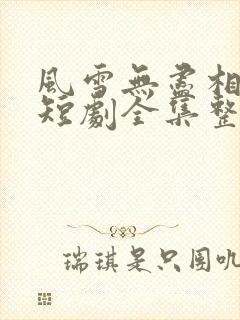 風雪無盡相
短劇全集整
瑞琪是只圈叽